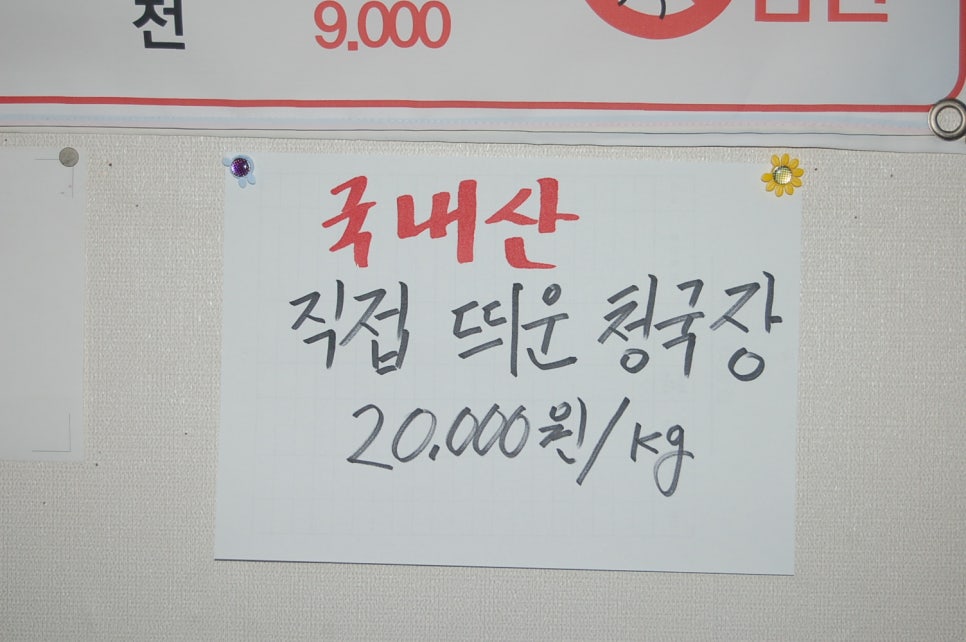 전 9.000
국내산
직접 띄운 청국장
20.000원/kg